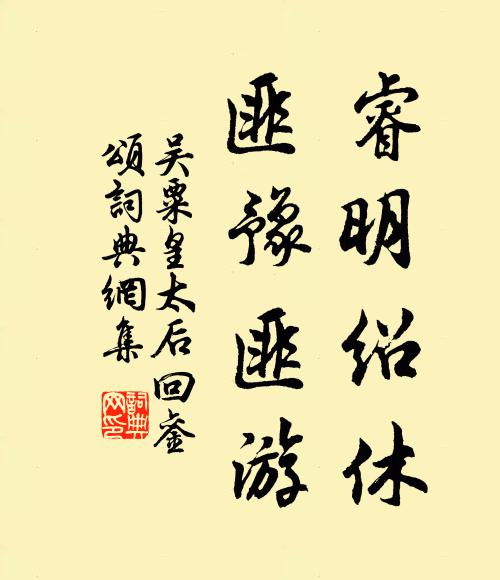 睿明绍休
匪豫匪游
吴栗皇太后回銮
颂词典網集
詞典网印